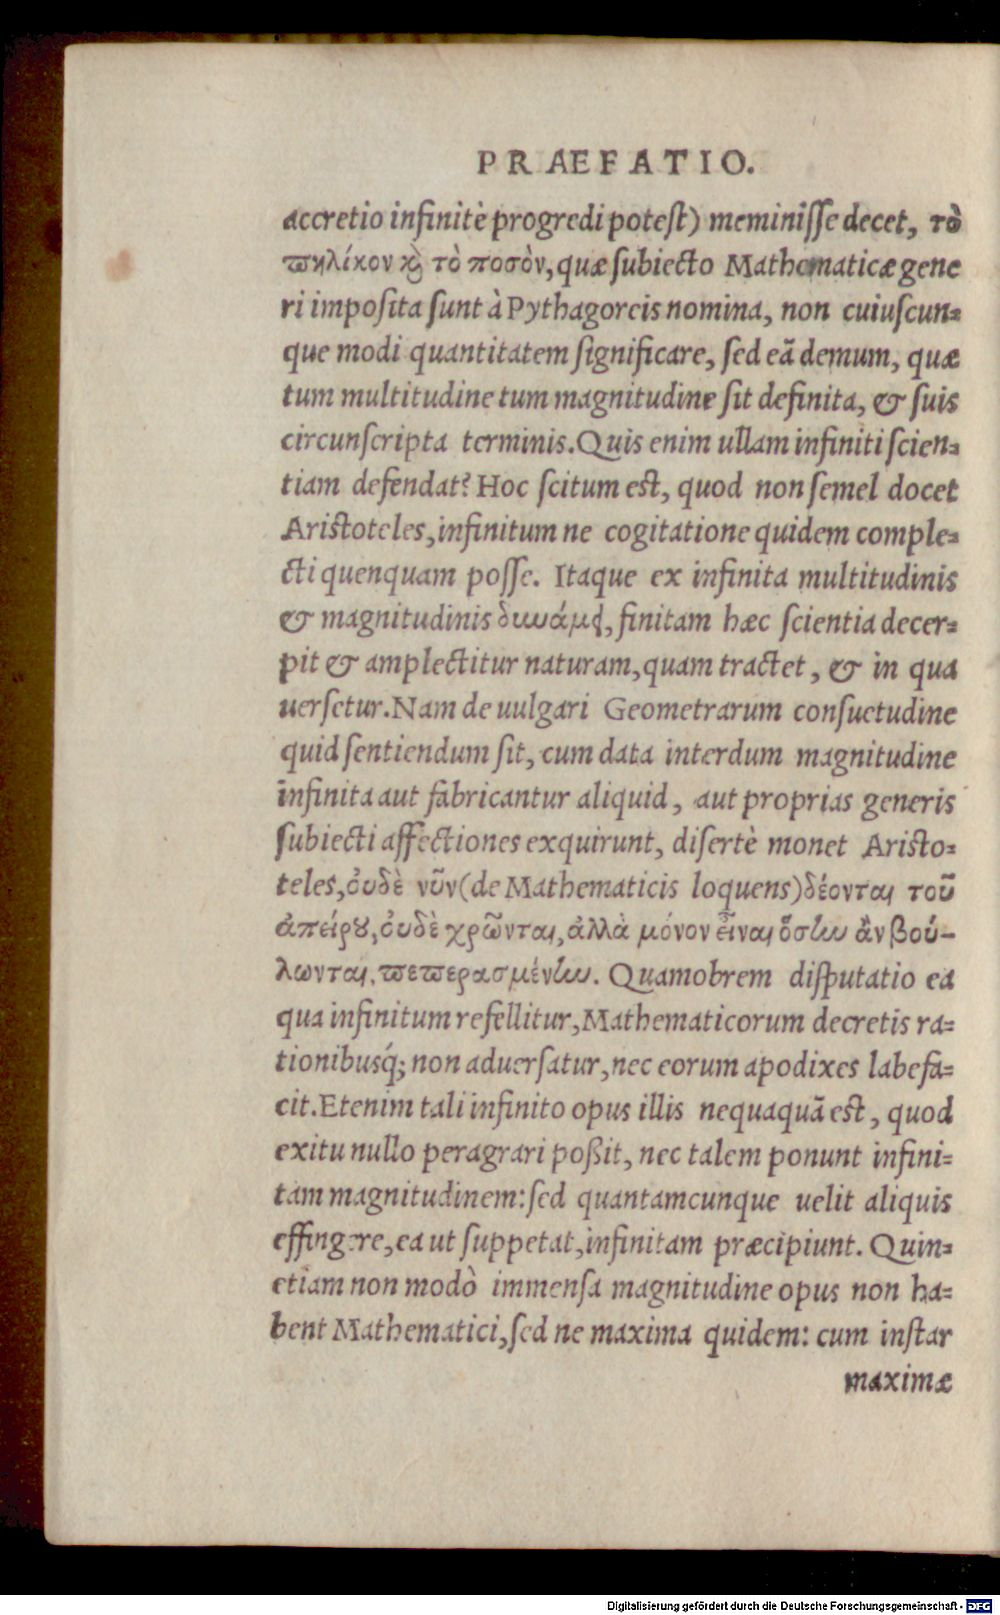 PRAEFATIO.
accretio infinitè progredi potest) meminisse decet, τὸ
πηλίκον καὶ τὸ ποσὸν, quæ subiecto Mathematicæ gene
ri imposita sunt à Pythagoreis nomina, non cuiuscun=
que modi quantitatem significare, sed eã demum, quæ
tum multitudine tum magnitudine sit definita, & suis
circunscripta terminis. Quis enim ullam infiniti scien=
tiam defendat? Hoc scitum est, quod non semel docet
Aristoteles, infinitum ne cogitatione quidem comple=
cti quenquam posse. Itaque ex infinita multitudinis
& magnitudinis δυνάμει, finitam hæc scientia decer=
pit & amplectitur naturam, quam tractet, & in qua
uersetur. Nam de uulgari Geometrarum consuetudine
quid sentiendum sit, cum data interdum magnitudine
infinita aut fabricantur aliquid, aut proprias generis
subiecti affectiones exquirunt, disertè monet Aristo=
teles, οὐδὲ νῦν (de Mathematicis loquens) δέονται τοῦ
ἀπείρου, οὐδὲ χρῶνται, ἀλλὰ μόνον εἶναι ὅσην ἂν βού-
λωνται, πεπερασμένην. Quamobrem disputatio ea
qua infinitum refellitur, Mathematicorum decretis ra=
tionibusq́; non aduersatur, nec eorum apodixes labefa=
cit. Etenim tali infinito opus illis nequaquã est, quod
exitu nullo peragrari poßit, nec talem ponunt infini=
tam magnitudinem: sed quantamcunque uelit aliquis
effingere, ea ut suppetat, infinitam præcipiunt. Quin=
etiam non modò immensa magnitudine opus non ha=
bent Mathematici, sed ne maxima quidem: cum instar
maximæ
Digitalisierung gefördert durch die Deutsche Forschungsgemeinschaft - DFG